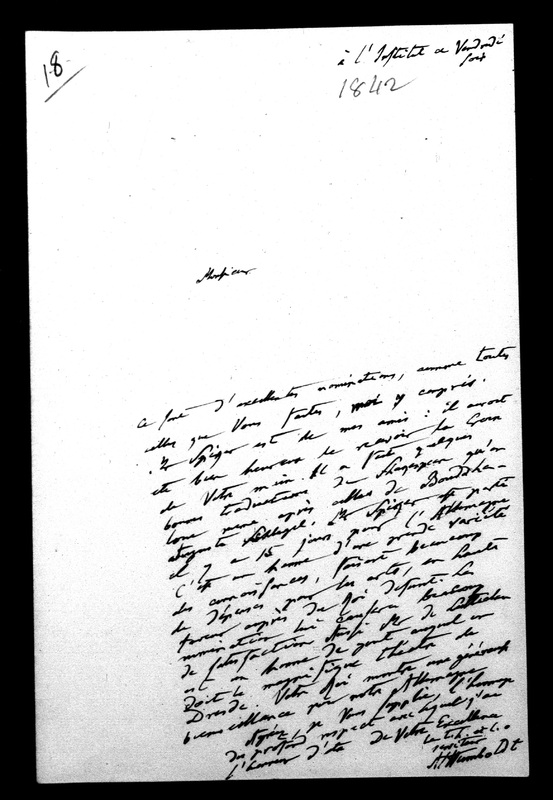 18
à l'Institut ce Vendredi
soir
1842
Monsieur
Ce sont d'excellentes nominations, comme toutes
celles que Vous faites, moi y compris.
Mr Spiker est de mes amis: il auroit
été bien heureux de recevoir la Croix
de Votre main. Il a fait quelques
bonnes traductions de Shakespear qu'on
loue meme après celles de
Auguste Schlegel. Mr Spiker est parti
il y a 15 jours pour l'Allemagne
C'est un homme d'une grande variété
des connoissances, faisant beaucoup
de dépenses pour les arts, en haute
faveur auprès du Roi défunt. La
nomination lui causera beaucoup
de satisfaction. Aussi Mr de Lüttichau
est un homme de gout auquel on
doit le magnifique théatre de
Dresde. Votre Roi montre une généreuse
bienveillance pour notre Allemagne.
Agréez, je Vous supplie, l'hommage
du profond respect avec lequel j'ai
l'honneur d'etre de Votre Excellence
le tr. h. et t. o.
serviteur
AlHumboldt